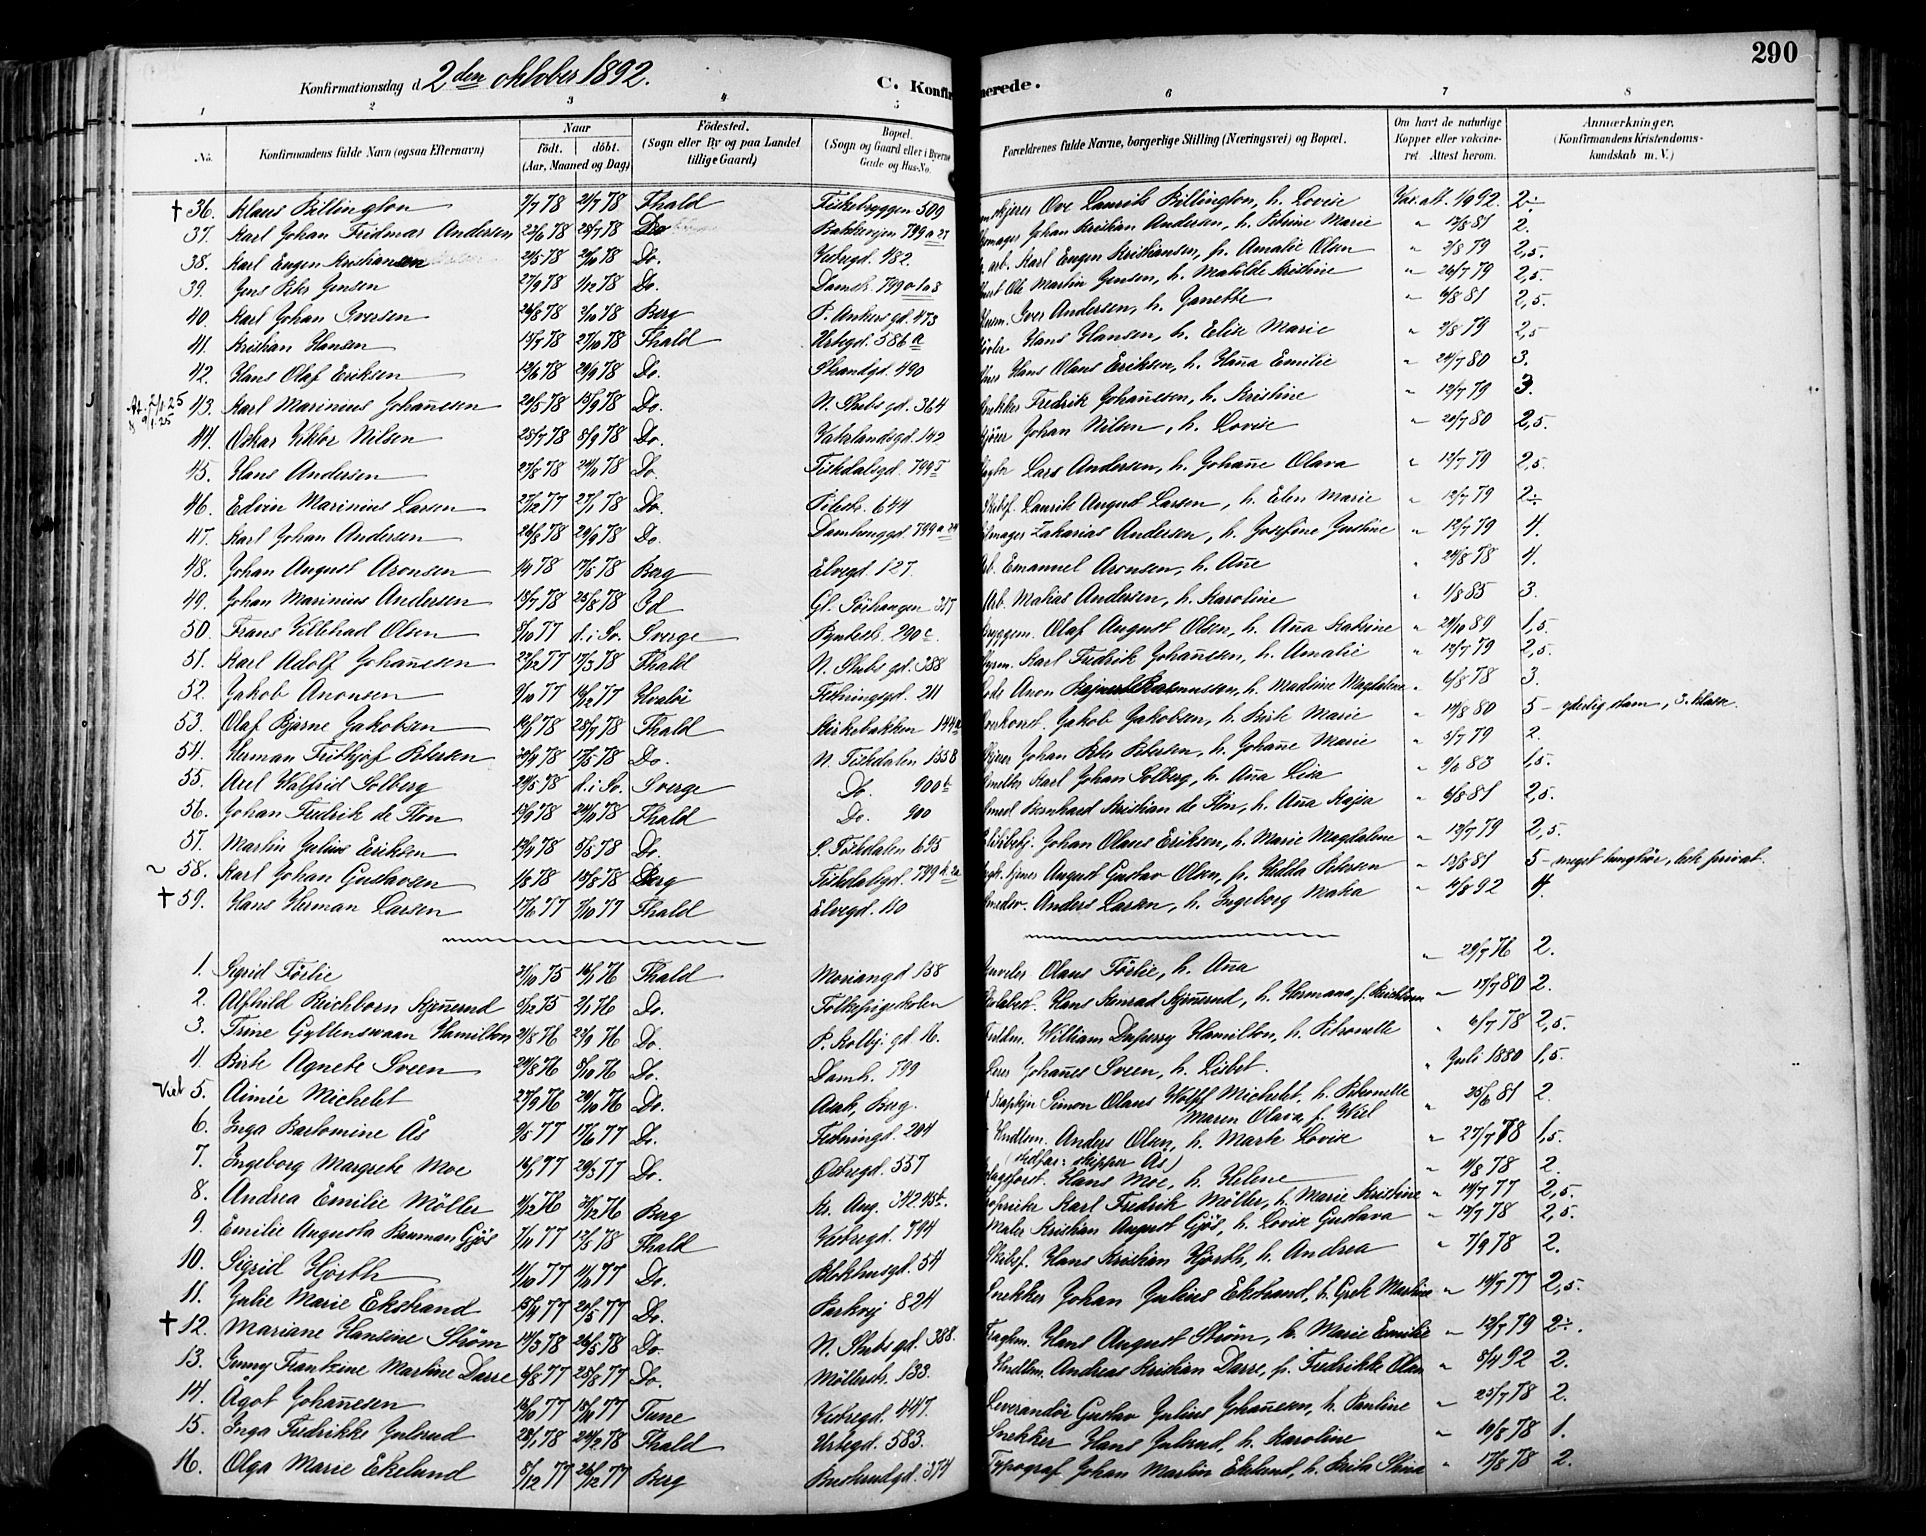 290
Konfirmationsdag d 2den oktober 1892.
C. Konfirmerede.
1 2 3 4 5 6 7 8
No. Konfirmandens fulde Navn (ogsaa Efternavn) Naar födt. döbt. (Aar, Maaned og Dag) Födested. (Sogn eller By og paa Landet tillige Gaard) Bopæl. (Sogn og Gaard eller i Byerne Gade og Hus-No. Forældrenes fulde Navne, borgerlige Stilling (Næringsvei) og Bopæl. Om havt de naturlige Kopper eller vakcineret. Attest herom. Anmærkninger, (Konfirmandens Kristendomskundskab m. V.)
† 36. Klaus Billington 7/7 78 21/7 78 Fhald Fiskebryggen 509 Ove Laurits Billington, h. Lovise Vac. att. 1/9 92. 2÷
37. Karl Johan Fridmar Andersen 23/6 78 28/7 78 Do Bakkevejen 799 a 27 Johan Kristian Andersen, h. Petrine Marie " 12/8 81 2.
38. Karl Eugen Kristiansen 21/5 78 21/10 78 Do. Vebregd. 482. arb. Karl Eugen Kristiansen, f. Amalie Olsen " 2/8 79 2,5.
39. Jens Petr Jensen 27/9 78 1/12 78 Do. Damh. 799 a 1 a 8 Ole Martin Jensen, h. Matilde Kristine " 26/7 79 2,5.
40. Karl Johan Iversen 28/8 78 3/10 78 Berg P. Ankers gd. 473 Iver Andersen, h. Janette " 6/8 81 2,5.
41. Kristian Hansen 13/7 78 27/10 78 Fhald Urtegd. 586 a Hans Hansen, h. Elise Marie " 2/8 79 2,5
42. Hans Olaf Eriksen 12/6 78 29/9 78 Do. Strandgd. 490 Hans Olaus Eriksen, h. Hana Emilie " 24/7 80 3.
43. Karl Marinius Johanesen 29/5 78 15/9 78 Do. N. Stubs gd. 364 Snekker Fredrik Johanesen, h. Kristine " 12/7 79 3.
44. Oskar Viktor Nilsen 25/7 78 8/9 78 Do. Vaterlandsgd. 142 Johan Nilsen, h. Lovise " 20/7 80 2,5.
45. Hans Andersen 27/8 78 24/11 78 Do. Tistedalsgd. 799 Lars Andersen, h. Johane Olava " 12/7 79 2,5.
46. Edvin Marinius Larsen 27/12 77 27/1 78 Do. Tolestr. 644 Skibsf. Laurits August Larsen, h. Elen Marie " 12/7 79 2÷
47. Karl Johan Andersen 26/8 78 29/9 78 Do. Damhenggd. 799 a 24 Zakarias Andersen, h. Josefine Gustine " 12/7 79 4.
48. Johan August Aronsen 1/4 78 17/5 78 Berg Elvegd. 127. Arb. Emanuel Aronsen, h. Ane " 24/8 78 4.
49. Johan Marinius Andersen 13/7 78 25/8 78 Id Gl. Röthangen 317 Arb. Matias Andersen, h. Karoline " 1/8 85 3.
50. Frans Villehad Olsen 8/10 77 d. i Sv. Sverge Bymstr. 290 c Bryggem. Olaf August Olsen, h. Ana Katrine " 29/10 89 1,5.
51. Karl Adolf Johanesen 22/12 77 17/3 78 Fhald N. Stubs gd. 388 Karl Fredrik Johanesen, h. Amalie " 12/7 79 2,5.
52. Jakob Aronsen 9/10 77 16/12 77 Hvalöi Tetningsgd. 211 Aron Rasmussen, h. Madine Magdalene " 6/8 78 3.
53. Olaf Bjarne Jakobsen 14/5 78 28/7 78 Fhald Kirkebakken 144a Jakob Jakobsen, h. Birte Marie " 14/8 80 5 – ydmlig stam, 3. klasse
54. Herman Fritthjof Petersen 20/4 78 17/5 78 Do. N. Tistedalen 1558 Johan Peter Petersen, h. Johane Marie " 5/7 79 2.
55. Axel Valfrid Solberg 24/5 78 d. i Sv. Sverge Do. 900 b Karl Johan Solberg, h. Ana Lisa " 9/6 83 1,5.
56. Johan Fredrik de Flon 13/9 78 24/10 78 Fhald Do. 900 Smed Bernhard Kristian de Flon, h. Ana Kajsa " 6/8 81 2,5.
57. Martin Julius Eriksen 12/4 78 5/5 78 Do. S. Tistedalen 695 Johan Olaus Eriksen, h. Marie Magdalene " 12/7 79 2,5.
~ 58. Karl Johan Gustavsen 1/8 78 18/8 78 Berg Tistedalsgd. 799 August Gustav Olsen, f. Hulda Petersen " 13/8 81 5 – meget tunghör, læk privat.
† 59. Hans Herman Larsen 17/6 77 7/10 77 Fhald Elvegd. 110 Anders Larsen, h. Ingeborg Maka " 4/8 92 4.
1. Sigrid Förlie 21/10 75 14/1 76 Fhald Moriangd 158 Guveler Olaus Förlie, h. Ana " 29/7 76 2.
2. Alfhild Reichborn Kjönerud 5/12 75 2/1 76 Do. Folkepigeskolen Hans Konrad Kjönerud, h. Hermana f. Reichborn " 17/7 80 2.
3. Trine Gyllenswaan Hamilton 21/8 76 23/9 76 Do. P. Kolbj. gd 16. William Duperry Hamilton, h. Petronelle " 6/7 78 2,5.
4. Birte Agnete Sveen 24/8 76 8/10 76 Do. Damh. 799 Johanes Sveen, h. Lisbet. " Juli 1880 1,5.
5. Aimée Michelet 27/9 76 29/10 76 Do. Asak, Berg. Simon Olaus Wolff Michelet, h. Petronelle Maren Olava f. Wiel " 25/6 81 2.
6. Inga Bartomine Ås 9/5 77 17/6 77 Do. Tetningd. 204 Hndlsm. Anders Olsen, h. Marte Lovise (stedfar: skipper Ås) " 27/7 78 1,5.
7. Ingeborg Margrete Moe 14/1 77 20/3 77 Do. Östregd. 557 Hans Moe, h. Helene " 4/8 78 2.
8. Andrea Emilie Möller 4/12 76 31/12 76 Berg Kr. Aug. 342.45b. Karl Fredrik Möller, h. Marie Kristine " 14/7 77 2,5.
9. Emilie Augusta Bauman Gjös 7/11 77 12/5 78 Fhald Vestregd. 794 Maler Kristian August Gjös, h. Lovise Gustava " 12/7 78 2,5.
10. Sigrid Hjorth 4/10 77 4/11 77 Do. Blokhusgd. 54 Skibsf. Hans Kristian Hjorth, h. Andrea " 7/9 78 2.
11. Julie Marie Ekstrand 15/4 77 20/5 77 Do. Parkvej 824 Snekker Johan Julius Ekstrand, h. Grete Martine " 14/7 77 2,5.
† 12. Mariane Hansine Ström 14/3 78 26/5 78 Do. N. Stubs gd. 388. Fraghm. Hans August Ström, h. Marie Emilie " 12/7 79 2÷.
13. Jenny Frantzine Martine Darre 6/8 77 25/8 77 Do. Möllerstr. 133. Hndlsm. Andreas Kristian Darre, f. Fredrikke Olsen " 8/4 92 2.
14. Ågot Johanesen 12/10 77 18/11 77 Tune Vestregd. 447. Leverandör Gustav Julius Johanesen, h. Pauline " 25/7 78 2.
15. Inga Fredrikke Julsrud 28/1 78 24/2 78 Fhald Urtegd. 583. Snekker Hans Julsrud, h. Karoline " 10/8 78 1.
16. Olga Marie Ekelund 5/12 77 26/12 77 Berg Buskrudgd. 374 Typograf Johan Martin Ekelund, h. Brita Stina " 17/8 78 2.